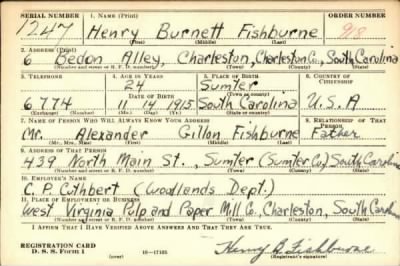 SERIAL NUMBER 1. NAME (Print) ORDER NUMBER
1247 Henry Burnett Fishburne 918
(First) (Middle) (Last)
2. ADDRESS (Print)
6 Bedon Alley, Charleston, Charleston Co., South Carolina
(Number and street or R. F. D. number) (Town) (County) (State)
3. TELEPHONE 4. AGE IN YEARS 5. PLACE OF BIRTH 6. COUNTRY OF CITIZENSHIP
24 Sumter
DATE OF BIRTH (Town or county)
6774 11 14 1915 South Carolina U.S.A
(Exchange) (Number) (Mo.) (Day) (Yr.) (State or country)
7. NAME OF PERSON WHO WILL ALWAYS KNOW YOUR ADDRESS 8. RELATIONSHIP OF THAT PERSON
Mr. Alexander Gillon Fishburne Father
(Mr., Mrs., Miss) (First) (Middle) (Last)
9. ADDRESS OF THAT PERSON
439 North Main St., Sumter (Sumter Co.) South Carolina
(Number and street or R. F. D. number) (Town) (County) (State)
10. EMPLOYER'S NAME
C. P. Cuthbert (Woodlands Dept.)
11. PLACE OF EMPLOYMENT OR BUSINESS
West Virginia Pulp and Paper Mill Co., Charleston, South Carolina
(Number and street or R. F. D. number) (Town) (County) (State)
I AFFIRM THAT I HAVE VERIFIED ABOVE ANSWERS AND THAT THEY ARE TRUE.
REGISTRATION CARD
D. S. S. Form 1 (over) 16—17105 Henry B. Fishburne
(Registrant's signature)